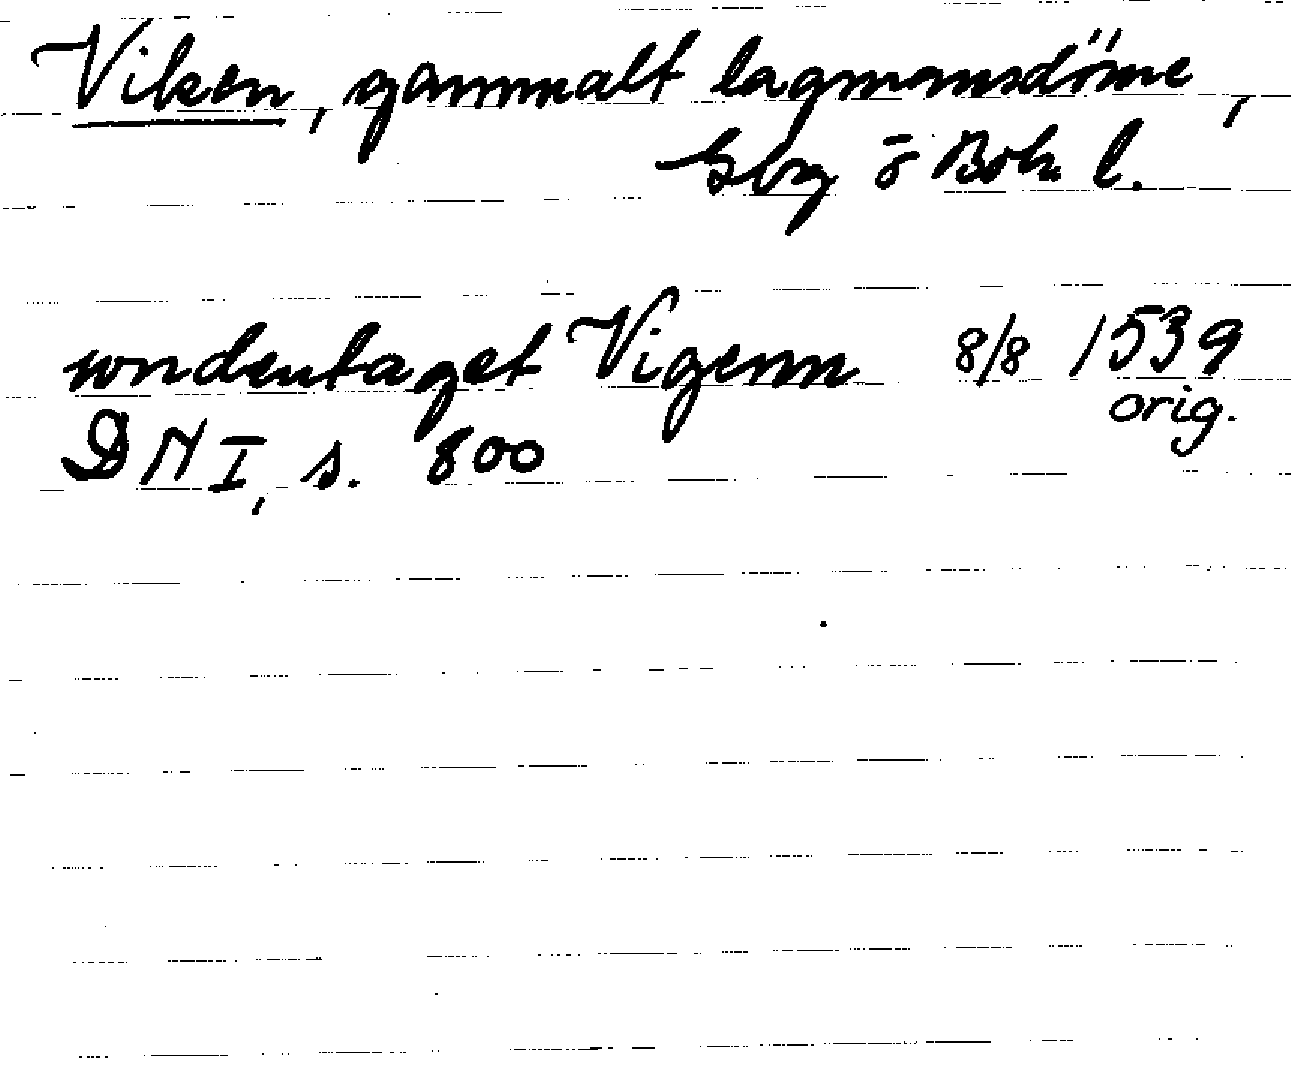 Viken, gammalt lagmansdöme,
Gbg o Boh. l.
wndentaget Vigenn 8/8 1539
orig.
DN I, s. 800